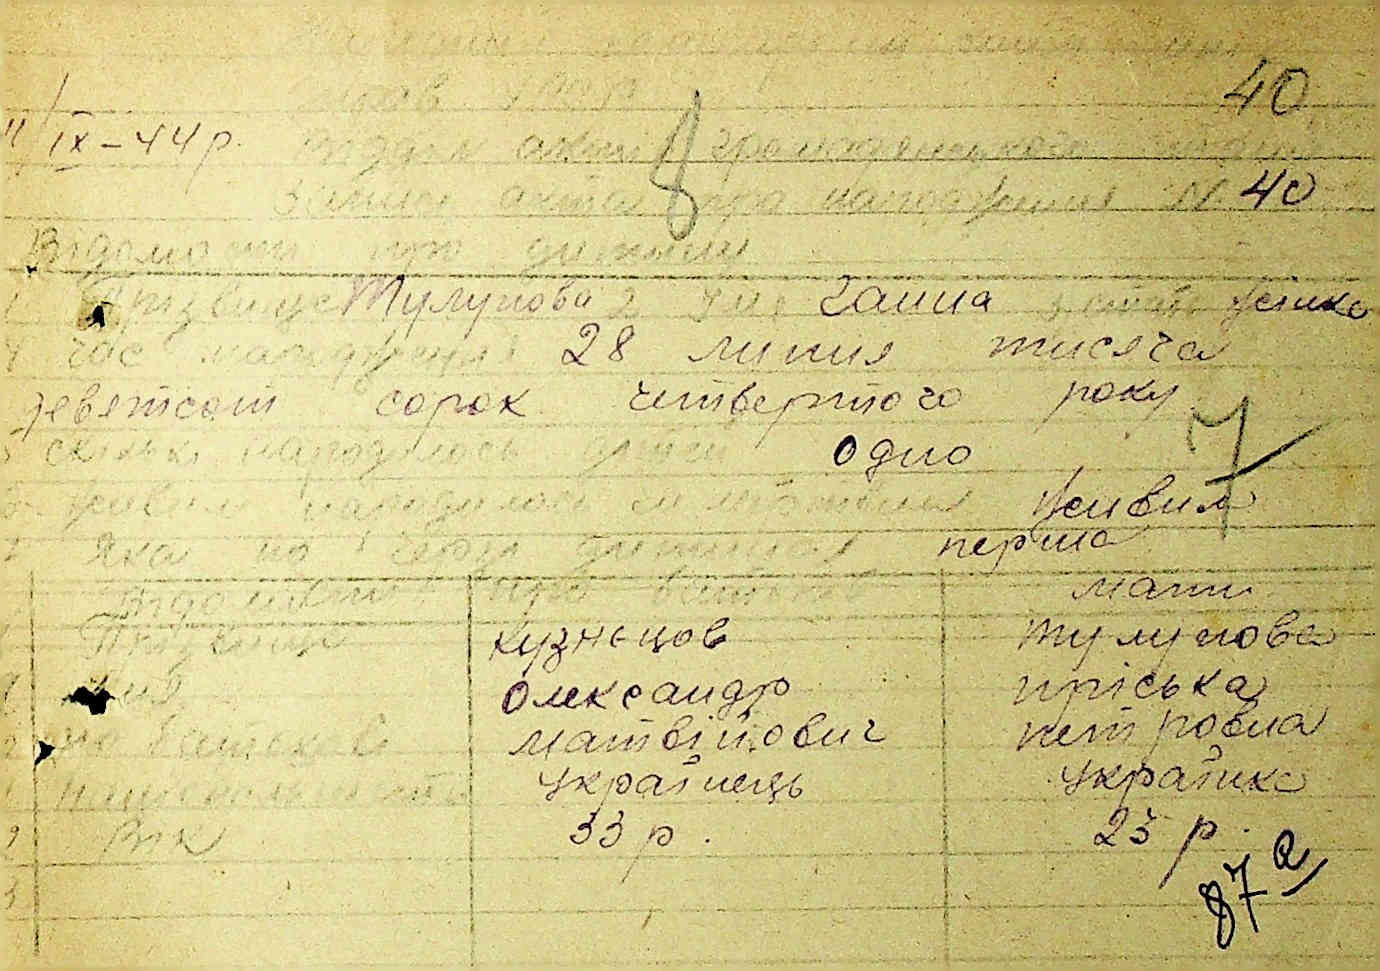 40
IX-44р.
Відділ актів громадянського
Запис акта про народження № 40
Відомости про дитину
Прізвище Тулупова 2 Ім'я Ганна 3 стать жіноча
час народження 28 липня тисяча
девятсот сорок четвертого року
скільки народилось дітей одно
живим народилось чи мертвим живим
7
яка по черзі дитина перша
Відомости про батьків мати
Прізвище Кузнєцов Тулупова
Імя Олександр Пріська
по батькові Матвійович Петровна
Національність Українець Українка
Вік 33 р. 23 р.
87а